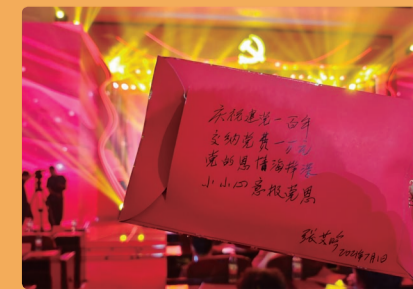 庆祝建党一百年
交纳党费一百
党的恩情海样深
小小心意报党恩
张
2021年7月1日